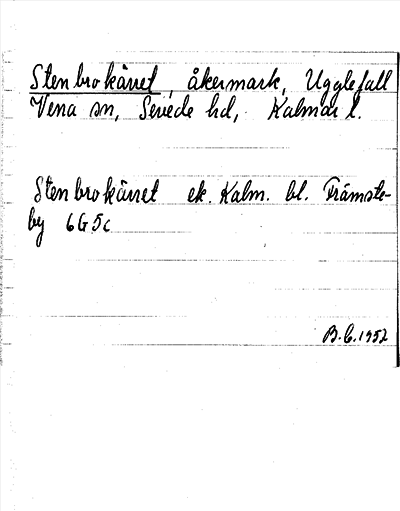 Stenbrokärret, åkermark, Ugglefall
Vena sn, Sevede hd, Kalmar l.
Stenbrokärret ek. Kalm. bl. Främste-
by 6G5c
B.C. 1952